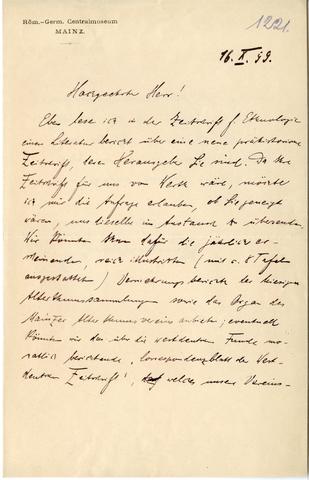 Röm.-Germ. Centralmuseum
MAINZ.
1221.
16. X. 99.
Hochgeehrter Herr!
Eben lese ich in der Zeitschrift f. Ethnologie
einen Literatur bericht über eine neue prähistorische
Zeitschrift, deren Herausgeber Sie sind. Da Ihre
Zeitschrift für uns von Wert wäre, möchte
ich mir die Anfrage erlauben, ob Sie geneigt
wären, uns dieselbe im Austausch zu übersenden.
Wir könnten Ihnen dafür die jährlich er-
scheinenden, reich illustrirten (mit c. 8 Tafeln
ausgestatteten) Vermehrungsberichte der hiesigen
Altertumssammlung sowie das Organ des
Mainzer Altertumsvereins anbieten; eventuell
könnten wir das über die westdeutschen Funde mo-
natlich berichtende „Correspondenzblatt der West-
deutschen Zeitschrift", welches unsere Vereins-